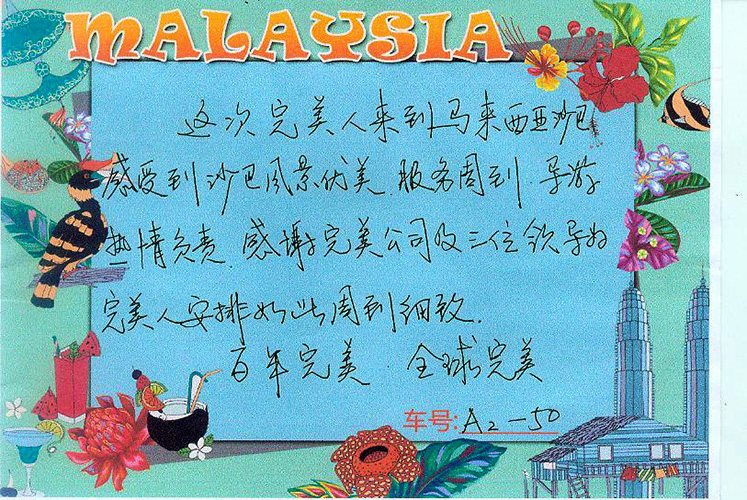 MALAYSIA
这次完美人来到马来西亚沙巴
感受到沙巴风景优美 服务周到.导游
热情负责.感谢完美公司及三位领导为
完美人安排如此周到细致.
百年完美 全球完美
车号: A2-50